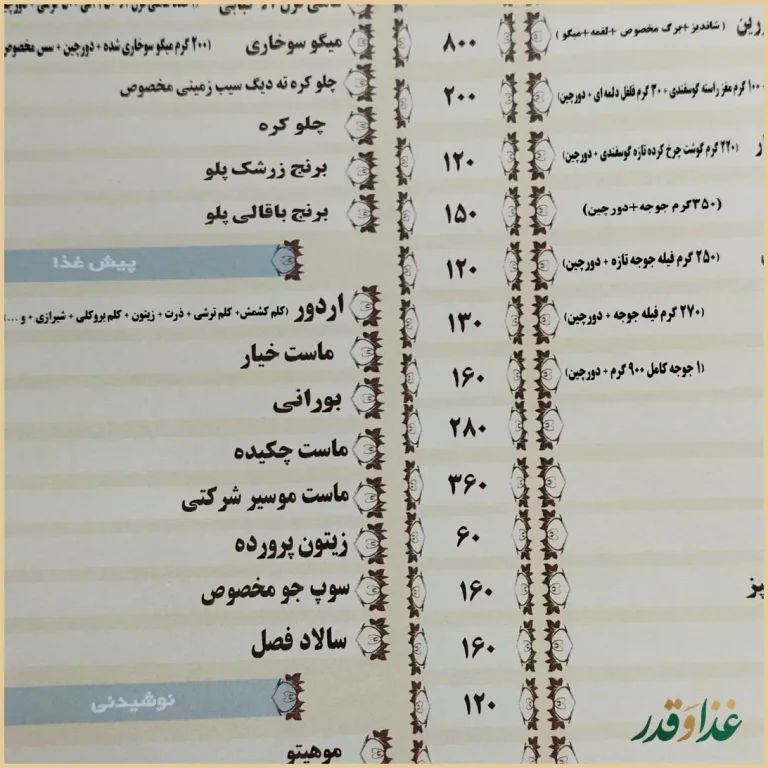 ( شاندیز+برگ مخصوص + لقمه+میگو ) ۸۰۰
گرم مغز راسته گوسفندی + ۳۰ گرم فلفل دلمه ای + دورچین) ۲۰۰
(۲۲۰ گرم گوشت چرخ کرده تازه گوسفندی + دورچین) ۱۲۰
(۳۵۰گرم جوجه+دورچین) ۱۵۰
(۲۵۰ گرم فیله جوجه تازه + دورچین) ۱۲۰
(۲۷۰ گرم فیله جوجه + دورچین) ۱۳۰
(۱ جوجه کامل ۹۰۰ گرم + دورچین) ۱۶۰
۲۸۰
۳۶۰
۶۰
۱۶۰
۱۶۰
۱۲۰
میگو سوخاری (۲۰۰ گرم میگو سوخاری شده + دورچین + سس مخصوص
چلو کره ته دیگ سیب زمینی مخصوص
چلو کره
برنج زرشک پلو
برنج باقالی پلو
پیش غذا
اردور (کلم کشمش+ کلم ترشی + ذرت + زیتون + کلم بروکلی + شیرازی + و ...)
ماست خیار
بورانی
ماست چکیده
ماست موسیر شرکتی
زیتون پرورده
سوپ جو مخصوص
سالاد فصل
نوشیدنی
موهیتو
غذا و قدر